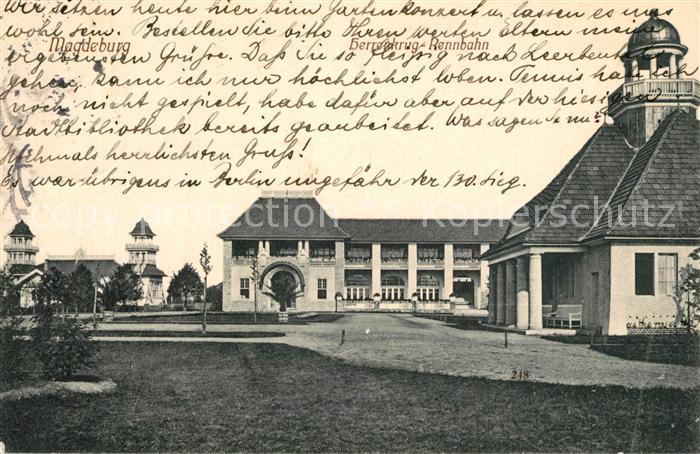 Wir setzen heute hier beim Gartenkonzert u. lassen es uns
wohl sein. Bestellen Sie bitte Ihren werten Eltern meine
Magdeburg
Herrenkrug-Rennbahn
ergebensten Grüße. Daß Sie so fleißig nach
gehen, kann ich nur höchlichst loben. Tennis habe ich
noch nicht gespielt, habe dafür aber auf der hiesigen
Stadtbibliothek bereits gearbeitet. Was sagen Sie nu?
Nochmals herrlichsten Gruß!
Es war übrigens in Berlin ungefähr der 130. Sieg.
copyright protection Copyright-Schutz
248